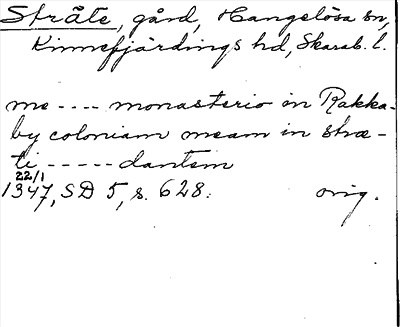 Stråte, gård, Hangelösa sn,
Kinnefjärdings hd, Skarab. l.
me ---- monasterio in Rakka-
by coloniam meam in stræ-
ti ----- dantem
22/1
1347, SD 5, s. 628. orig.